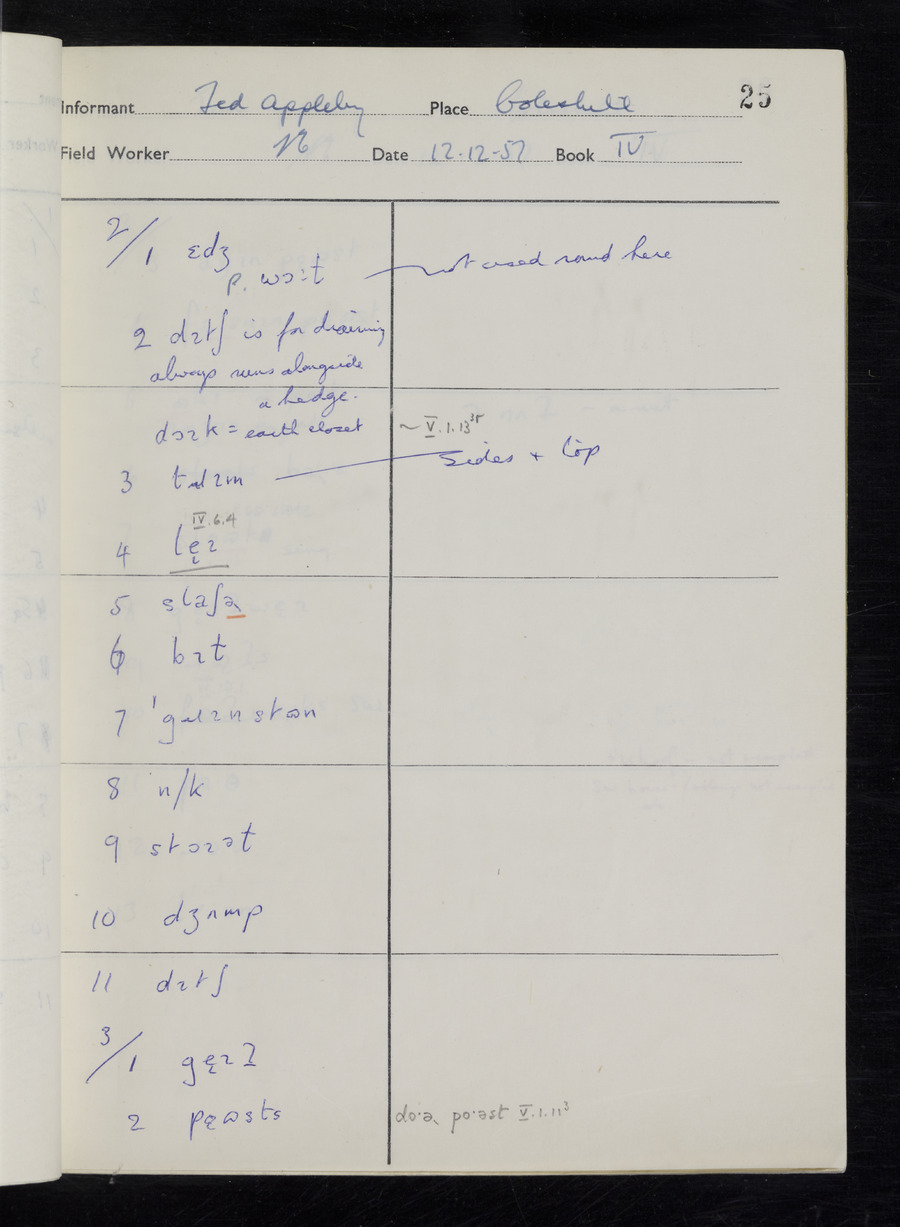 25
Informant Fred Appleby Place Coleshill
Field Worker Date 12-12-57 Book IV
2/1 ɛdʒ
p. wɔːt not used round here
2 dɪtʃ is for draining
always runs alongside
a hedge.
dɔɪk = earth closet ~ V.1.13
3 sides + top
IV.6.4
4 lęɪ
5 slaʃə
6 bɪt
7
8 n/k
9
10 dʒʌmp
11 dɪtʃ
3/1
2 pęʊsts doˑə poˑəst V.1.11³